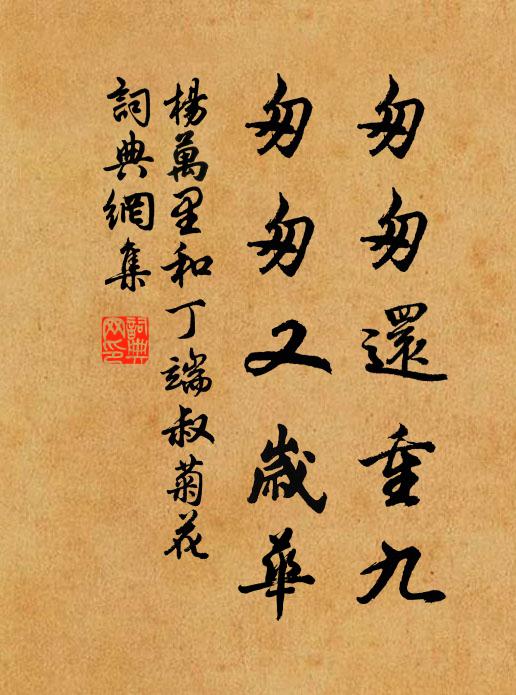 匆匆還重九
匆匆又歲華
楊萬里和丁端叔菊花
詞典網集
詞典網印